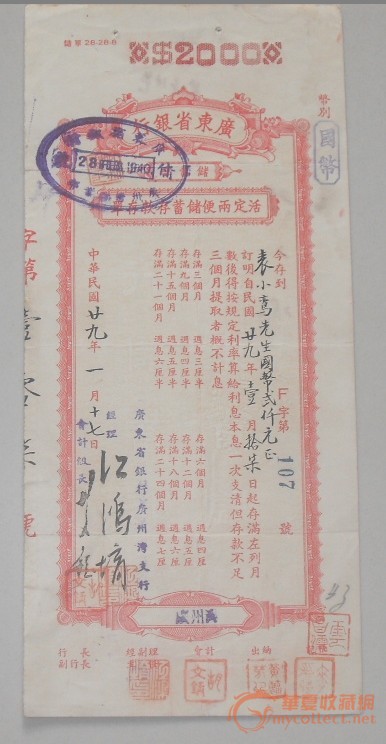 簡單 28-28-6
$2000
幣別
國幣
廣東省銀行
儲
活定兩便儲蓄存款存單
今存到
袁小嵩先生國幣貳仟元正
F字第107號
訂明自民國廿九年壹月拾柒日起存滿左列月
數後得按規定利率算給利息本息一次支清但存款不足
三個月提取者概不計息
存滿三個月 週息三厘半 存滿六個月 週息四厘
存滿九個月 週息四厘半 存滿十二個月 週息五厘
存滿十五個月 週息五厘半 存滿十八個月 週息六厘
存滿二十一個月 週息六厘半 存滿二十四個月 週息七厘
廣東省銀行廣州灣支行
經理
會計股長
中華民國廿九年一月十七日
字第壹零柒號
行長
副行長
經副理
會計
出納
華夏收藏網
mycollect.net